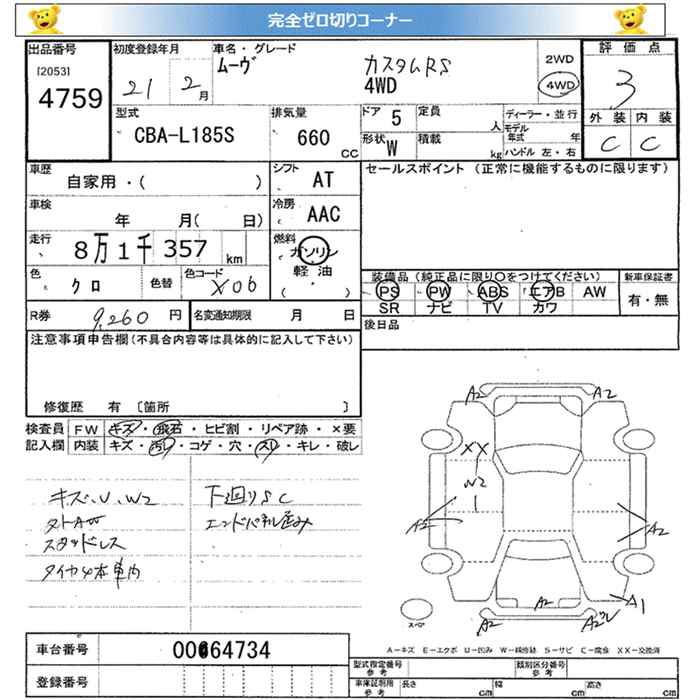 完全ゼロ切りコーナー
出品番号
[2053]
4759
初度登録年月
21 2月
車名・グレード
ムーヴ カスタムRS
4WD
2WD
4WD
評価点
3
外装 内装
C C
型式
CBA-L185S
排気量
660 CC
ドア 5
定員 人
形状 W
積載 kg
ディーラー・並行
モデル年式 年
ハンドル 左・右
車歴
自家用・( )
シフト AT
セールスポイント (正常に機能するものに限ります)
車検
年 月( 日)
冷房 AAC
走行
8万1千357 km
燃料
ガソリン
軽油
( ・ )
色
クロ
色替
色コード
X06
装備品 (純正品に限り○をつけてください)
PS PW ABS エアB AW
SR ナビ TV カワ
新車保証書
有・無
R券 9,260 円
名変通知期限 月 日
後日品
注意事項申告欄(不具合内容等は具体的に記入して下さい)
修復歴 有 〔箇所 〕
検査員記入欄
FW キズ・飛石・ヒビ割・リペア跡・×要
内装 キズ・汚レ・コゲ・穴・スレ・キレ・破レ
キズ、U、W2
下廻りSC
エンドパネル歪み
スタッドレス
タイヤ4本車内
A2 A2
XX
W2
A2
A2
A2
A1
A2
スペア
A-キズ E-エクボ U-凹み W-補修跡 S-サビ C-腐食 XX-交換済
車台番号
00664734
登録番号
型式指定番号
参考
類別区分番号
参考
車庫証明用
参考
長さ cm 幅 cm 高さ cm